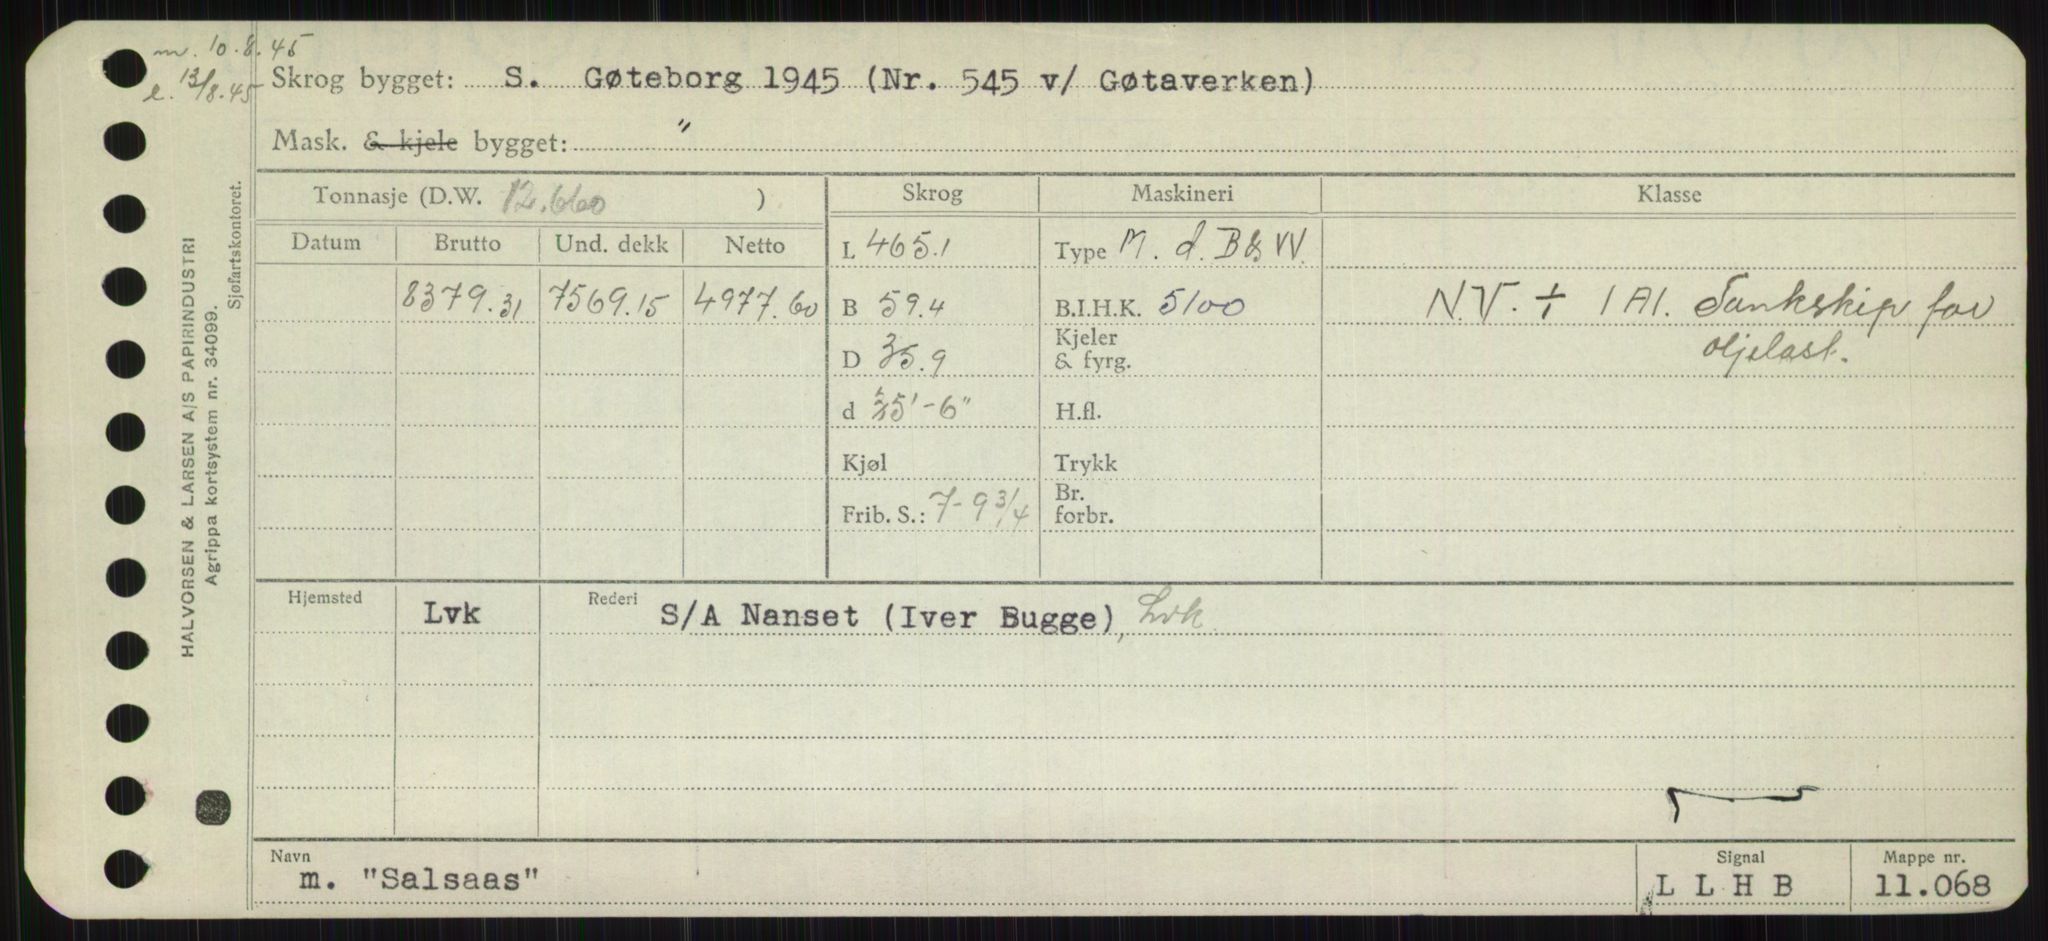 m. 10.8.45
e. 13/8.45
Skrog bygget: S. Gøteborg 1945 (Nr. 545 v/ Gøtaverken)
Mask. & kjele bygget: "
Tonnasje (D.W. 12.660 )
Skrog
Maskineri
Klasse
Datum Brutto Und. dekk Netto
8379.31 7569.15 4977.60
L 465.1
B 59.4
D 35.9
d 35'-6"
Kjøl
Frib. S.: 7-9 3/4
Type M. d. B & W.
B.I.H.K. 5100
Kjeler
& fyrg.
H.fl.
Trykk
Br.
forbr.
N.V. + 1A1. Tankskip for
oljelast.
Hjemsted Lvk Rederi S/A Nanset (Iver Bugge), Lvk
Navn
m. "Salsaas"
Signal
L L H B
Mappe nr.
11.068
HALVORSEN & LARSEN A/S PAPIRINDUSTRI
Agrippa kortsystem nr. 34099.
Sjøfartskontoret.